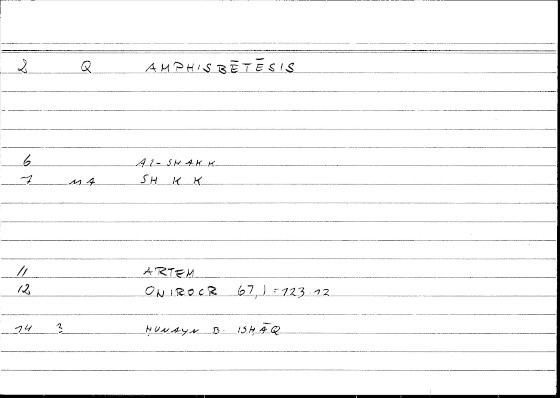 2 Q AMPHISBĒTĒSIS
6 AL-SHAKK
7 MA SH K K
11 ARTEM
12 ONIROCR 67,1 = 123.12
14 3 ḤUNAYN B. ISḤĀQ